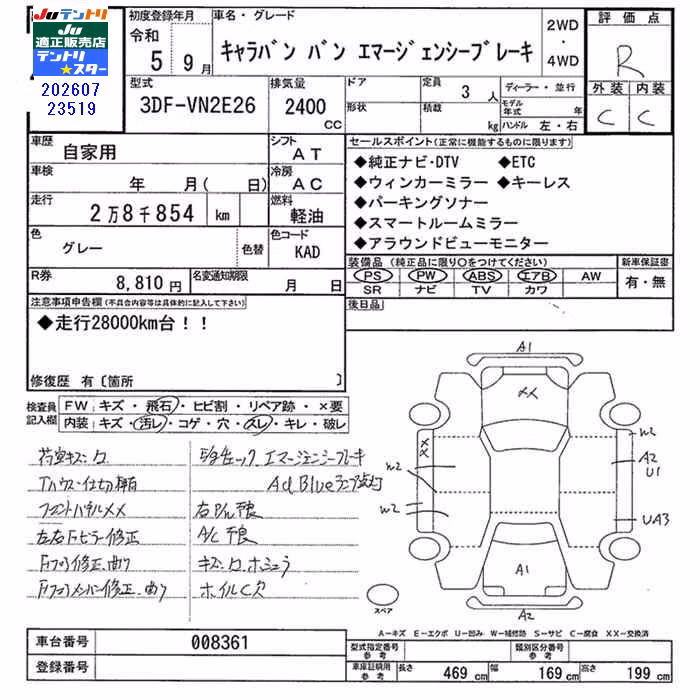 JUテントリ
JU
適正販売店
テントリ
スター
202607
23519
初度登録年月
令和
5 9月
車名・グレード
キャラバン バン エマージェンシーブレーキ
2WD
・
4WD
評価点
R
外装 内装
C C
型式
3DF-VN2E26
排気量
2400
CC
ドア
形状
定員
3人
積載
kg
ディーラー・並行
モデル
年式 年
ハンドル 左・右
車歴
自家用
シフト
AT
車検
年 月( 日)
冷房
AC
走行
2万8千854 km
燃料
軽油
色
グレー
色替
色コード
KAD
R券
8,810円
名変通知期限
月 日
セールスポイント(正常に機能するものに限ります)
◆純正ナビ・DTV ◆ETC
◆ウィンカーミラー ◆キーレス
◆パーキングソナー
◆スマートルームミラー
◆アラウンドビューモニター
装備品 (純正品に限り○をつけてください)
PS PW ABS エアB AW
SR ナビ TV カワ
新車保証書
有・無
後日品
注意事項申告欄(不具合内容等は具体的に記入して下さい)
◆走行28000km台!!
修復歴 有〔箇所 〕
検査員
記入欄
FW キズ・飛石・ヒビ割・リペア跡・×要
内装 キズ・汚レ・コゲ・穴・スレ・キレ・破レ
エマージェンシーブレーキ
AdBlueランプ点灯
フロントパネルXX
左右Fピラー修正
A/C不良
ホイルC欠
A1
XX
XX
W2
W2
W2
A2
U1
UA3
A1
A2
スペア
A-キズ E-エクボ U-凹み W-補修跡 S-サビ C-腐食 XX-交換済
車台番号
008361
登録番号
型式指定番号
参考
類別区分番号
参考
車庫証明用
参考
長さ 469 cm
幅 169 cm
高さ 199 cm